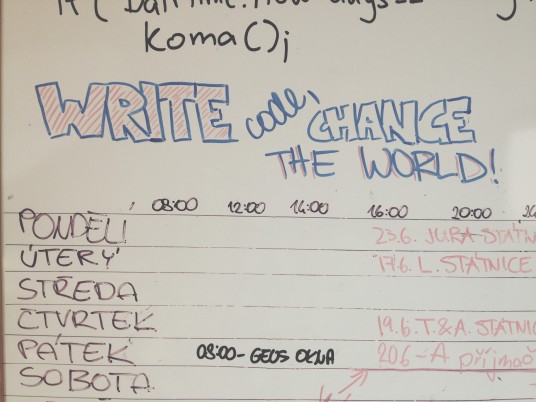 koma();
WRITE code, CHANCE
THE WORLD!
08:00 12:00 14:00 16:00 20:00
PONDĚLÍ 23.6. JURA-STÁTN
ÚTERÝ 17.6. L. STÁTNICE
STŘEDA
ČTVRTEK 19.6. T.&A. STÁTNIC
PÁTEK 08:00- GEUS OKNA 20.6-A přijmač
SOBOTA